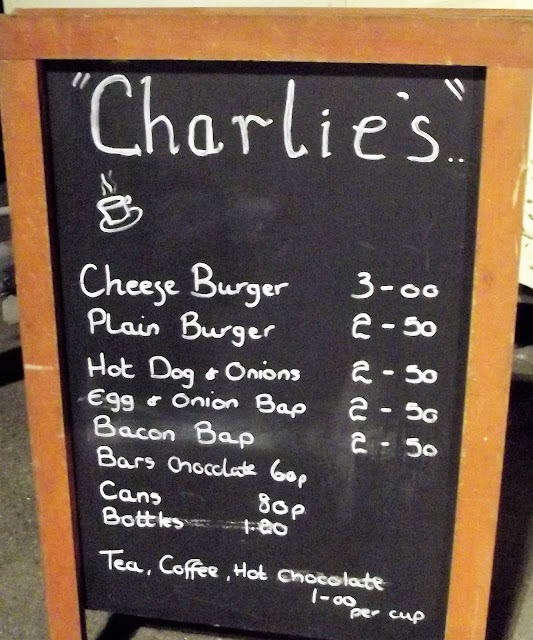 "Charlie's"..
Cheese Burger 3-00
Plain Burger 2-50
Hot Dog & Onions 2-50
Egg & Onion Bap 2-50
Bacon Bap 2-50
Bars Chocolate 60p
Cans 80p
Bottles 1.20
Tea, Coffee, Hot Chocolate
1-00
per cup